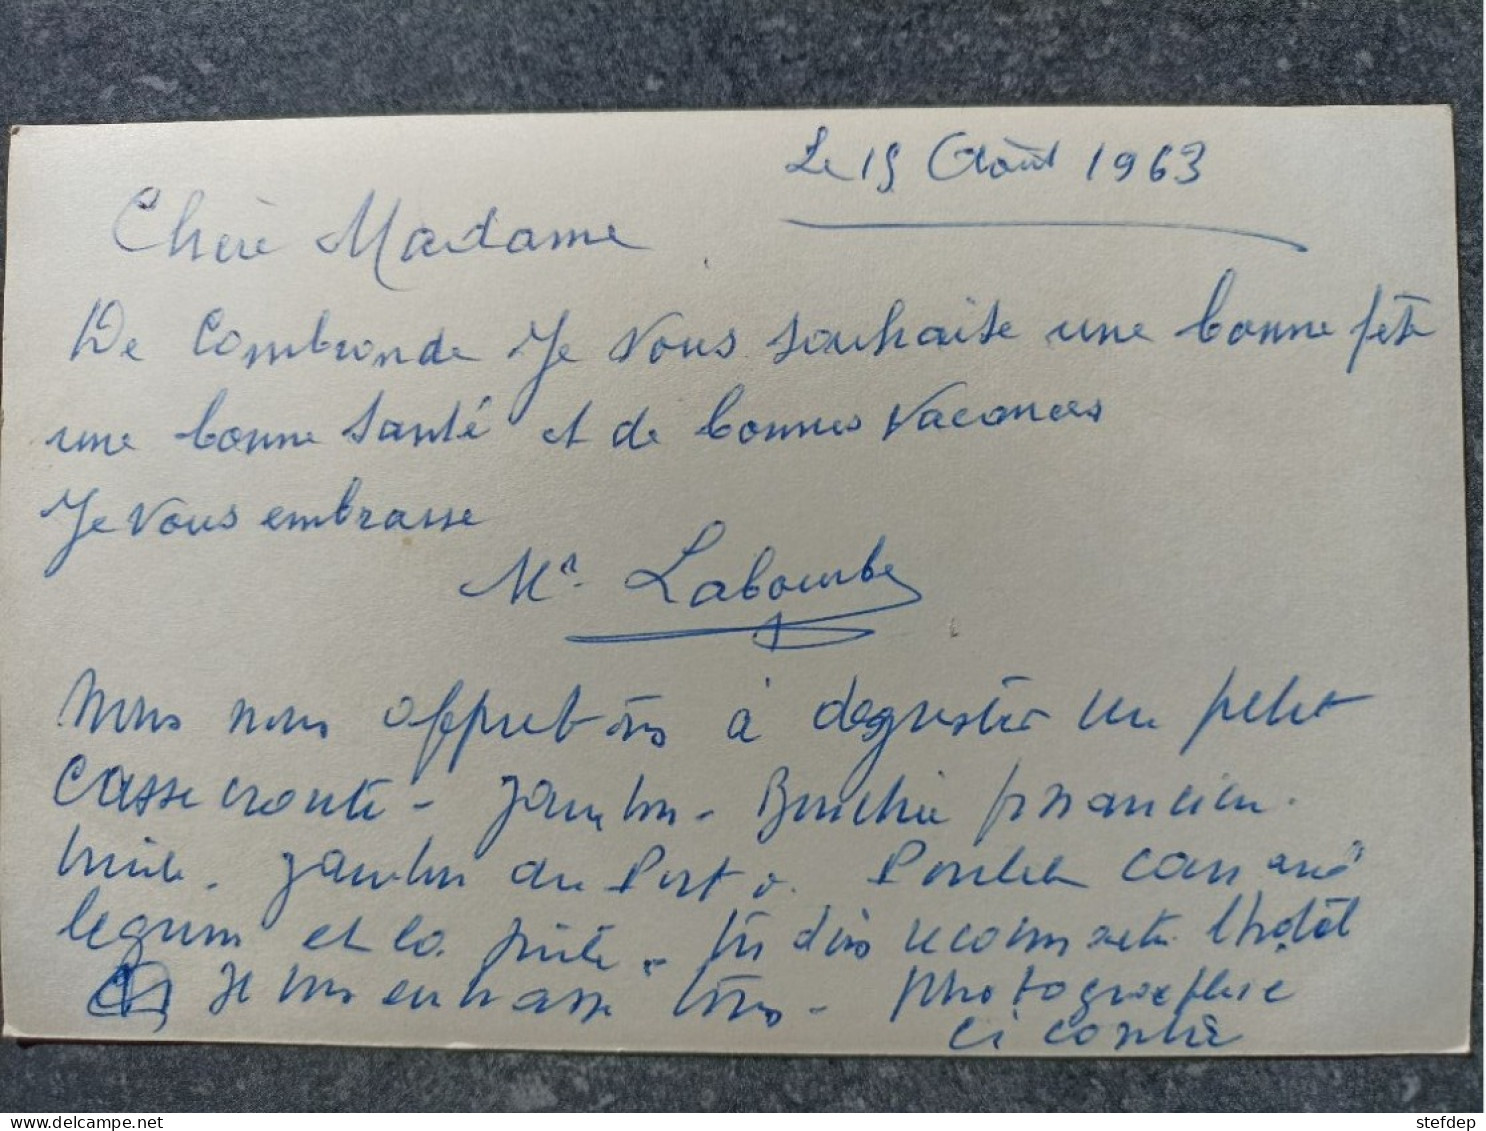 Le 15 Août 1963
Chère Madame
De Combronde Je Vous souhaite une bonne fête
une bonne santé et de bonnes vacances
Je Vous embrasse
Mr Labourbe
Nous nous apprêtons à deguster un petit
casse croute - Jambon - Bouchée financière.
truite. Jambon au Porto. Poulet canapé
legum et la suite. tu dois reconnaitre l'hotel
Je vous embrasse tous - photographie
ci contre
delcampe.net
stefdep